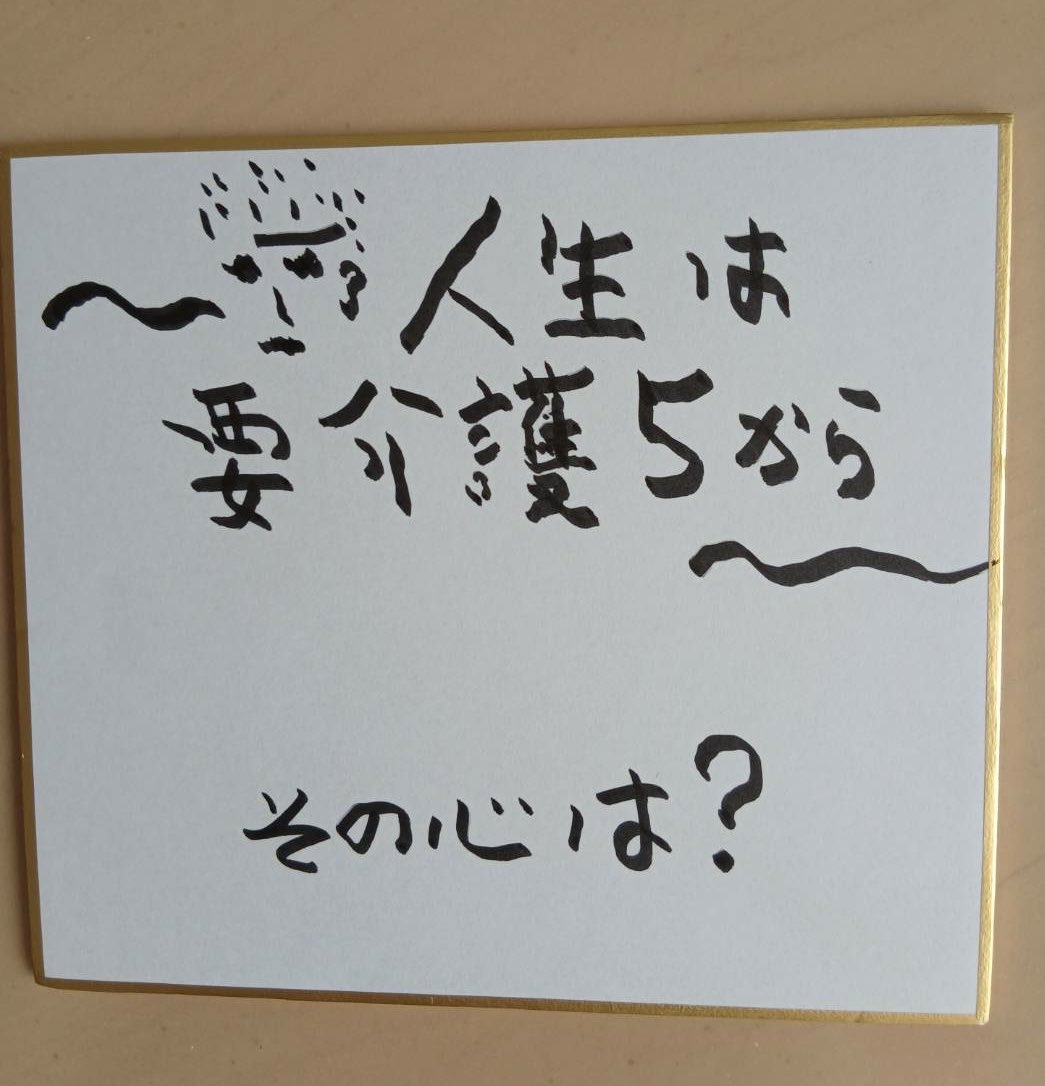 〜人生は
要介護5から
〜
その心は?